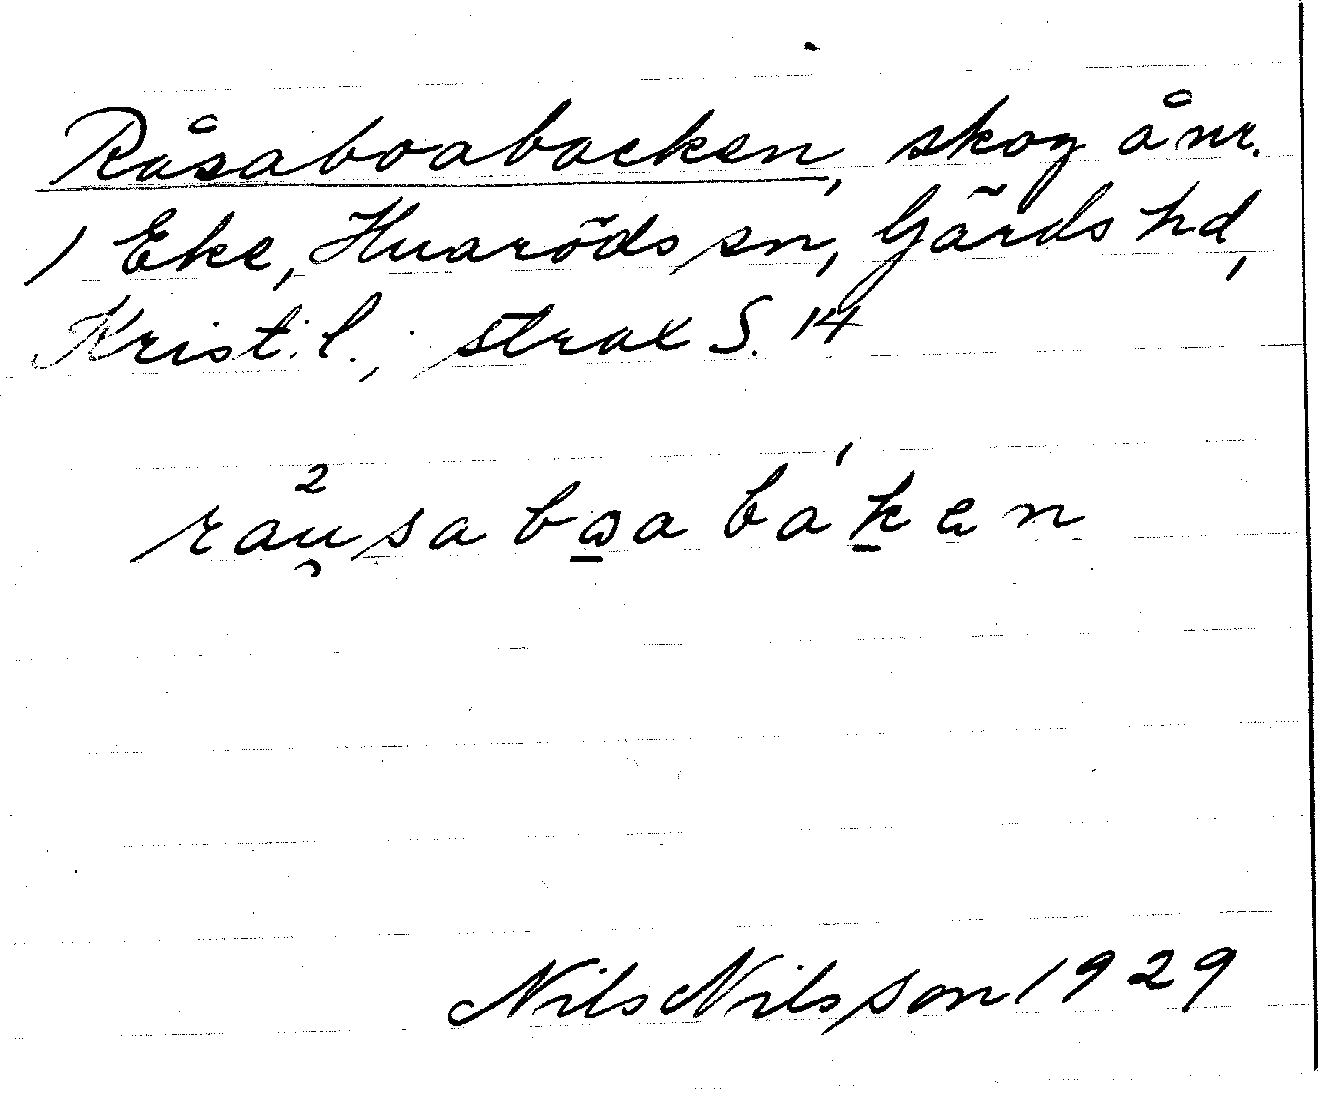 Råsaboabacken, skog å nr.
1 Eke, Huaröds sn, Gärds hd,
Krist. l.; strax S. 14
rau̯²sabɷ̱aba'ḵen
Nils Nilsson 1929